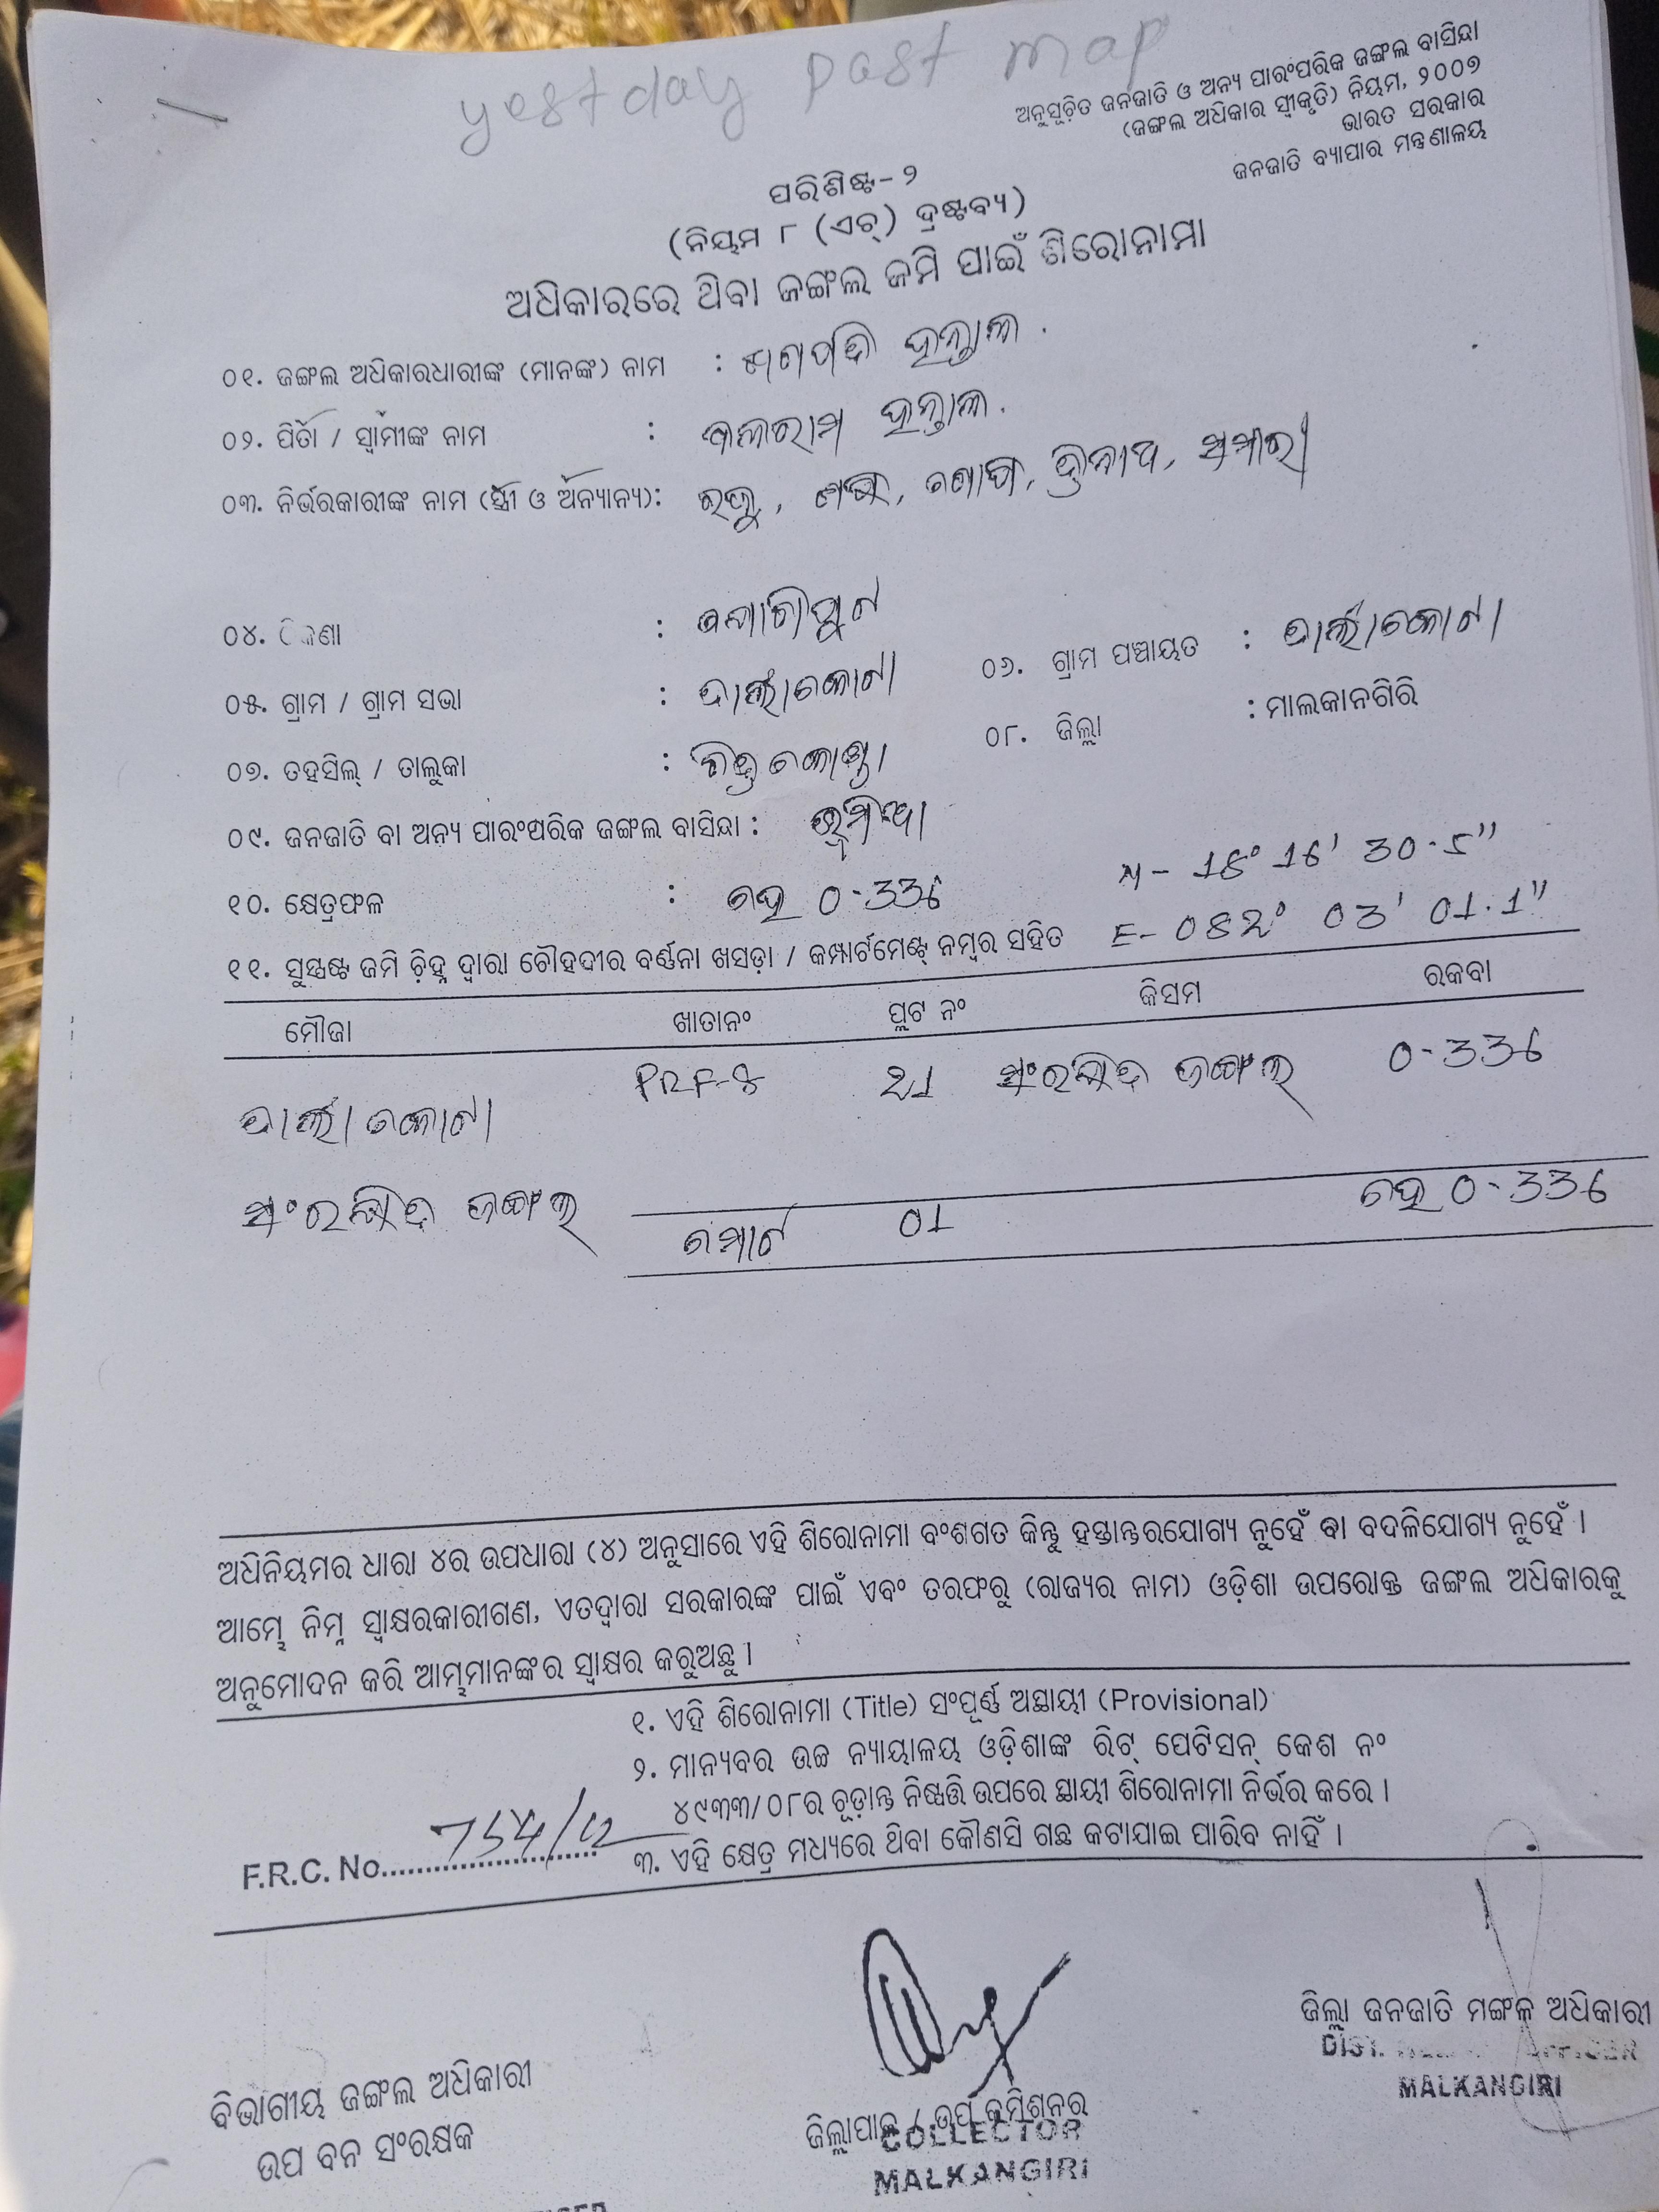 yestday past map
ଅନୁସୂଚିତ ଜନଜାତି ଓ ଅନ୍ୟ ପାରଂପରିକ ଜଙ୍ଗଲ ବାସିନ୍ଦା
(ଜଙ୍ଗଲ ଅଧିକାର ସ୍ୱୀକୃତି) ନିୟମ, ୨୦୦୭
ଭାରତ ସରକାର
ଜନଜାତି ବ୍ୟାପାର ମନ୍ତ୍ରଣାଳୟ
ପରିଶିଷ୍ଟ-୨
(ନିୟମ ୮ (ଏଚ୍) ଦ୍ରଷ୍ଟବ୍ୟ)
ଅଧିକାରରେ ଥିବା ଜଙ୍ଗଲ ଜମି ପାଇଁ ଶିରୋନାମା
୦୧. ଜଙ୍ଗଲ ଅଧିକାରଧାରୀଙ୍କ (ମାନଙ୍କ) ନାମ : ହନ୍ତାଳ
୦୨. ପିତା / ସ୍ୱାମୀଙ୍କ ନାମ : ବଳରାମ ହନ୍ତାଳ
୦୩. ନିର୍ଭରକାରୀଙ୍କ ନାମ (ସ୍ତ୍ରୀ ଓ ଅନ୍ୟାନ୍ୟ):
୦୪. ଠିକଣା :
୦୫. ଗ୍ରାମ / ଗ୍ରାମ ସଭା : ଦାର୍ଲାକୋଟା ୦୬. ଗ୍ରାମ ପଞ୍ଚାୟତ :
୦୭. ତହସିଲ୍ / ତାଲୁକା : ଚିତ୍ରକୋଣ୍ଡା ୦୮. ଜିଲ୍ଲା : ମାଲକାନଗିରି
୦୯. ଜନଜାତି ବା ଅନ୍ୟ ପାରଂପରିକ ଜଙ୍ଗଲ ବାସିନ୍ଦା : ଭୂମିଆ
୧୦. କ୍ଷେତ୍ରଫଳ : ହେ 0.336 N- 18° 16' 30.5"
୧୧. ସୁସ୍ପଷ୍ଟ ଜମି ଚିହ୍ନ ଦ୍ୱାରା ଚୌହଦୀର ବର୍ଣ୍ଣନା ଖସଡ଼ା / କମ୍ପାର୍ଟମେଣ୍ଟ୍ ନମ୍ବର ସହିତ E- 082° 03' 01.1"
ମୌଜା ଖାତାନଂ ପ୍ଲଟ ନଂ କିସମ ରକବା
PRF-8 21 ସଂରକ୍ଷିତ ଜଙ୍ଗଲ 0.336
ସଂରକ୍ଷିତ ଜଙ୍ଗଲ
ମୋଟ 01 ହେ 0.336
ଅଧିନିୟମର ଧାରା ୪ର ଉପଧାରା (୪) ଅନୁସାରେ ଏହି ଶିରୋନାମା ବଂଶଗତ କିନ୍ତୁ ହସ୍ତାନ୍ତରଯୋଗ୍ୟ ନୁହେଁ ବା ବଦଳିଯୋଗ୍ୟ ନୁହେଁ ।
ଆମ୍ଭେ ନିମ୍ନ ସ୍ୱାକ୍ଷରକାରୀଗଣ, ଏତଦ୍ଦ୍ୱାରା ସରକାରଙ୍କ ପାଇଁ ଏବଂ ତରଫରୁ (ରାଜ୍ୟର ନାମ) ଓଡ଼ିଶା ଉପରୋକ୍ତ ଜଙ୍ଗଲ ଅଧିକାରକୁ
ଅନୁମୋଦନ କରି ଆମ୍ଭମାନଙ୍କର ସ୍ୱାକ୍ଷର କରୁଅଛୁ ।
୧. ଏହି ଶିରୋନାମା (Title) ସଂପୂର୍ଣ୍ଣ ଅସ୍ଥାୟୀ (Provisional)
୨. ମାନ୍ୟବର ଉଚ୍ଚ ନ୍ୟାୟାଳୟ ଓଡ଼ିଶାଙ୍କ ରିଟ୍ ପେଟିସନ୍ କେଶ ନଂ
୪୯୩୩/୦୮ର ଚୂଡ଼ାନ୍ତ ନିଷ୍ପତ୍ତି ଉପରେ ସ୍ଥାୟୀ ଶିରୋନାମା ନିର୍ଭର କରେ ।
୩. ଏହି କ୍ଷେତ୍ର ମଧ୍ୟରେ ଥିବା କୌଣସି ଗଛ କଟାଯାଇ ପାରିବ ନାହିଁ ।
F.R.C. No.
ଜିଲ୍ଲା ଜନଜାତି ମଙ୍ଗଳ ଅଧିକାରୀ
DIST. OFFICER
MALKANGIRI
ବିଭାଗୀୟ ଜଙ୍ଗଲ ଅଧିକାରୀ
ଉପ ବନ ସଂରକ୍ଷକ
ଜିଲ୍ଲାପାଳ / ଉପ କମିଶନର
COLLECTOR
MALKANGIRI